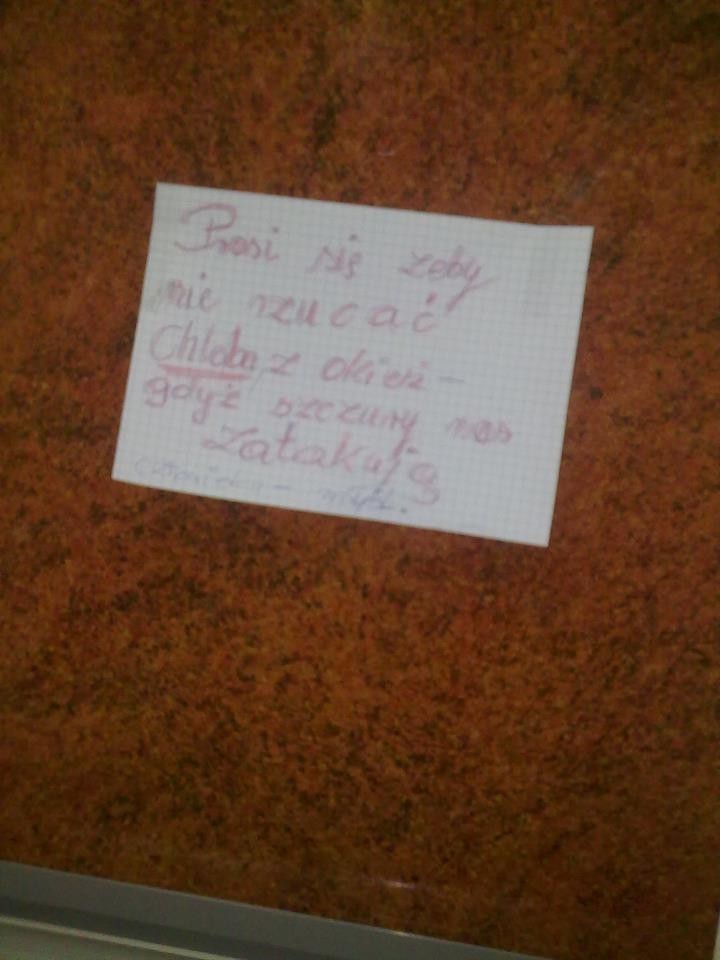 Prosi się zeby
nie rzucać
Chleba z okień -
gdyż szczury nas
Zatakują